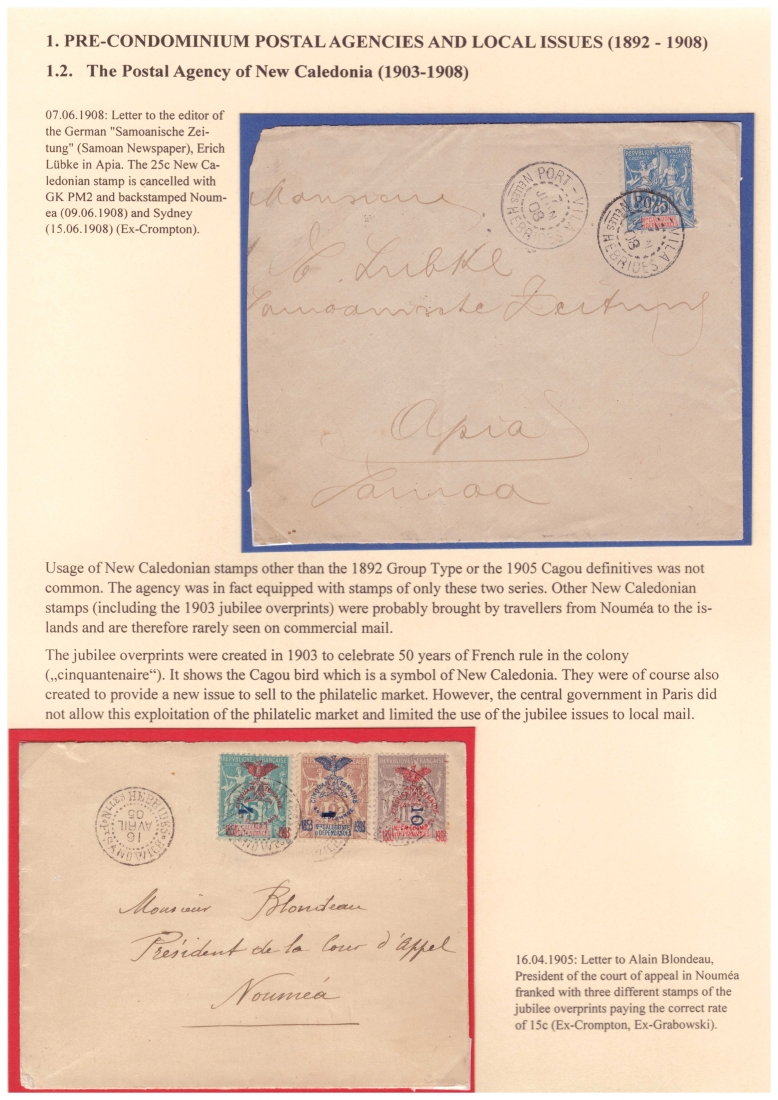 1. PRE-CONDOMINIUM POSTAL AGENCIES AND LOCAL ISSUES (1892 - 1908)
1.2. The Postal Agency of New Caledonia (1903-1908)
07.06.1908: Letter to the editor of
the German "Samoanische Zei-
tung" (Samoan Newspaper), Erich
Lübke in Apia. The 25c New Ca-
ledonian stamp is cancelled with
GK PM2 and backstamped Noum-
ea (09.06.1908) and Sydney
(15.06.1908) (Ex-Crompton).
REPUBLIQUE FRANÇAISE
PORT-VILA
JUIN
08
NELLES HEBRIDES
PORT-VILA
08
NELLES HEBRIDES
Monsieur
E. Lubke
Samoanische Zeitung
Apia
Samoa
Usage of New Caledonian stamps other than the 1892 Group Type or the 1905 Cagou definitives was not
common. The agency was in fact equipped with stamps of only these two series. Other New Caledonian
stamps (including the 1903 jubilee overprints) were probably brought by travellers from Nouméa to the is-
lands and are therefore rarely seen on commercial mail.
The jubilee overprints were created in 1903 to celebrate 50 years of French rule in the colony
(„cinquantenaire“). It shows the Cagou bird which is a symbol of New Caledonia. They were of course also
created to provide a new issue to sell to the philatelic market. However, the central government in Paris did
not allow this exploitation of the philatelic market and limited the use of the jubilee issues to local mail.
NLLES HEBRIDES
16
AVRIL
05
PT SANDWICH
4
1
10
Monsieur Blondeau
Président de la Cour d'Appel
Nouméa
16.04.1905: Letter to Alain Blondeau,
President of the court of appeal in Nouméa
franked with three different stamps of the
jubilee overprints paying the correct rate
of 15c (Ex-Crompton, Ex-Grabowski).